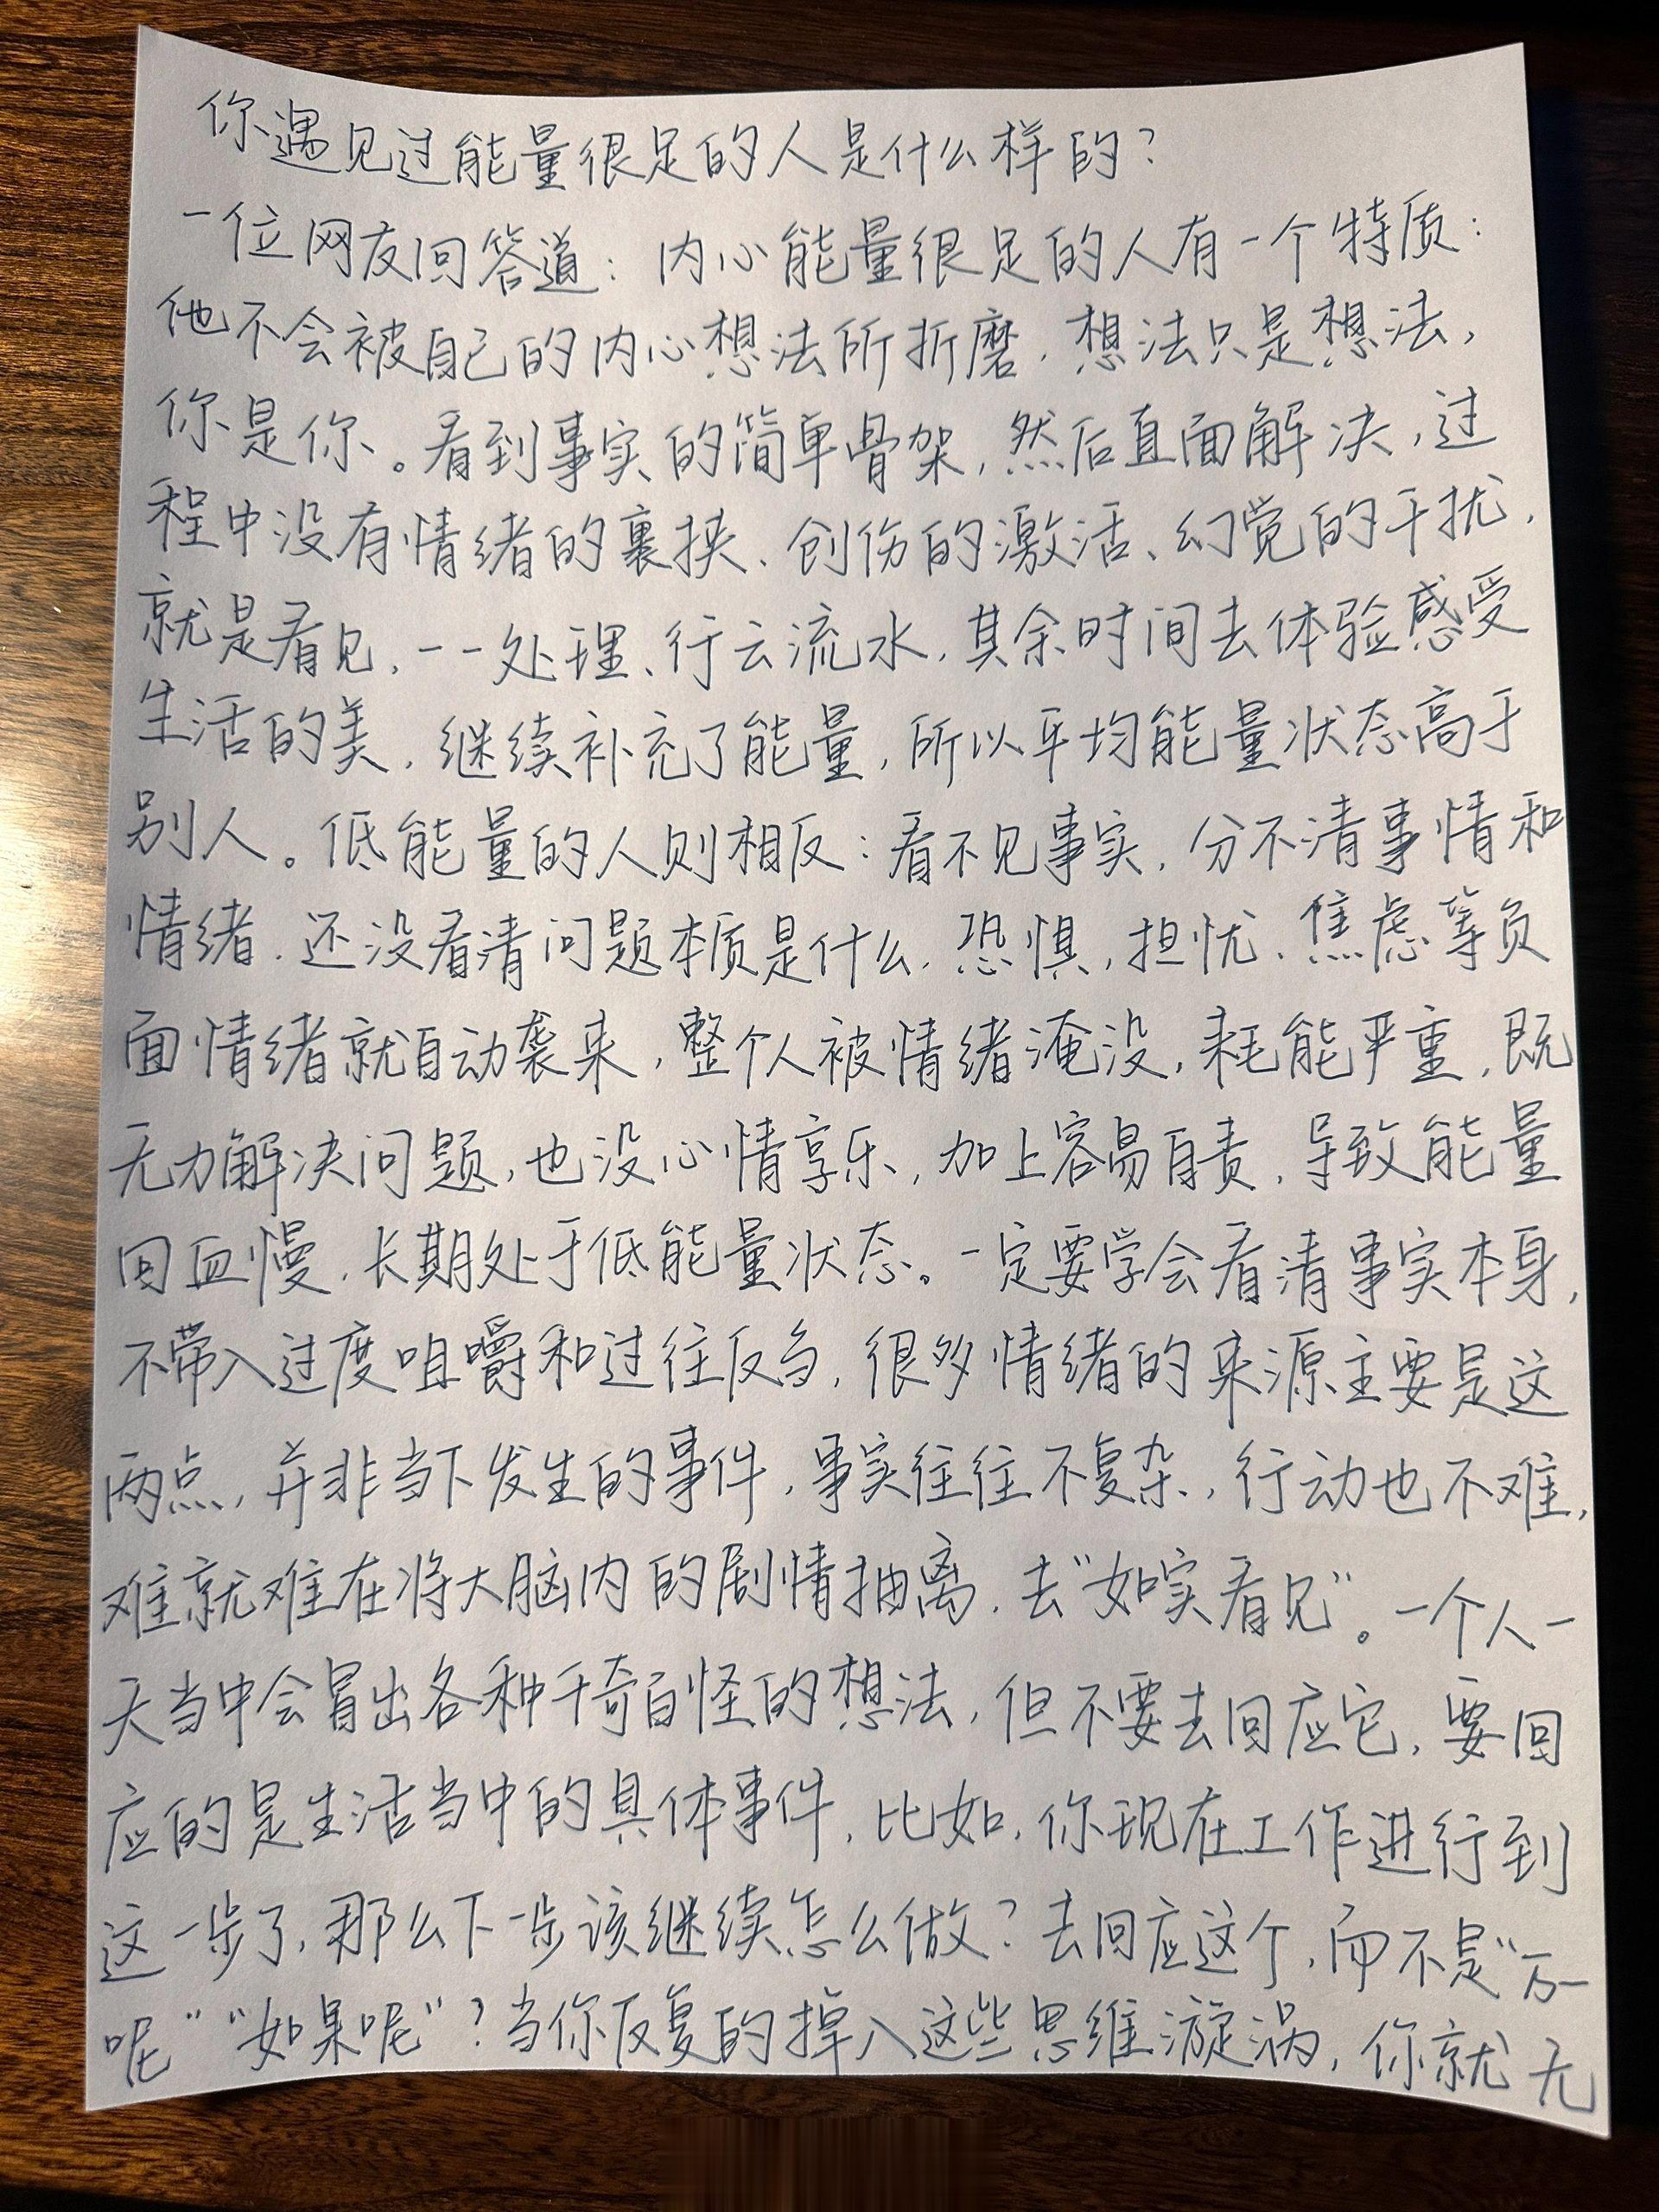 你遇见过能量很足的人是什么样的？
一位网友回答道：内心能量很足的人有一个特质：
他不会被自己的内心想法所折磨，想法只是想法，
你是你。看到事实的简单骨架，然后直面解决，过
程中没有情绪的裹挟、创伤的激活、幻觉的干扰，
就是看见，一一处理、行云流水，其余时间去体验感受
生活的美，继续补充了能量，所以平均能量状态高于
别人。低能量的人则相反：看不见事实，分不清事情和
情绪，还没看清问题本质是什么，恐惧，担忧、焦虑等负
面情绪就自动袭来，整个人被情绪淹没，耗能严重，既
无力解决问题，也没心情享乐，加上容易自责，导致能量
回血慢，长期处于低能量状态。一定要学会看清事实本身，
不带入过度咀嚼和过往反刍，很多情绪的来源主要是这
两点，并非当下发生的事件，事实往往不复杂，行动也不难，
难就难在将大脑内的剧情抽离，去“如实看见”。一个人一
天当中会冒出各种千奇百怪的想法，但不要去回应它，要回
应的是生活当中的具体事件，比如，你现在工作进行到
这一步了，那么下一步该继续怎么做？去回应这个，而不是“万一
呢”“如果呢”？当你反复的掉入这些思维漩涡，你就无